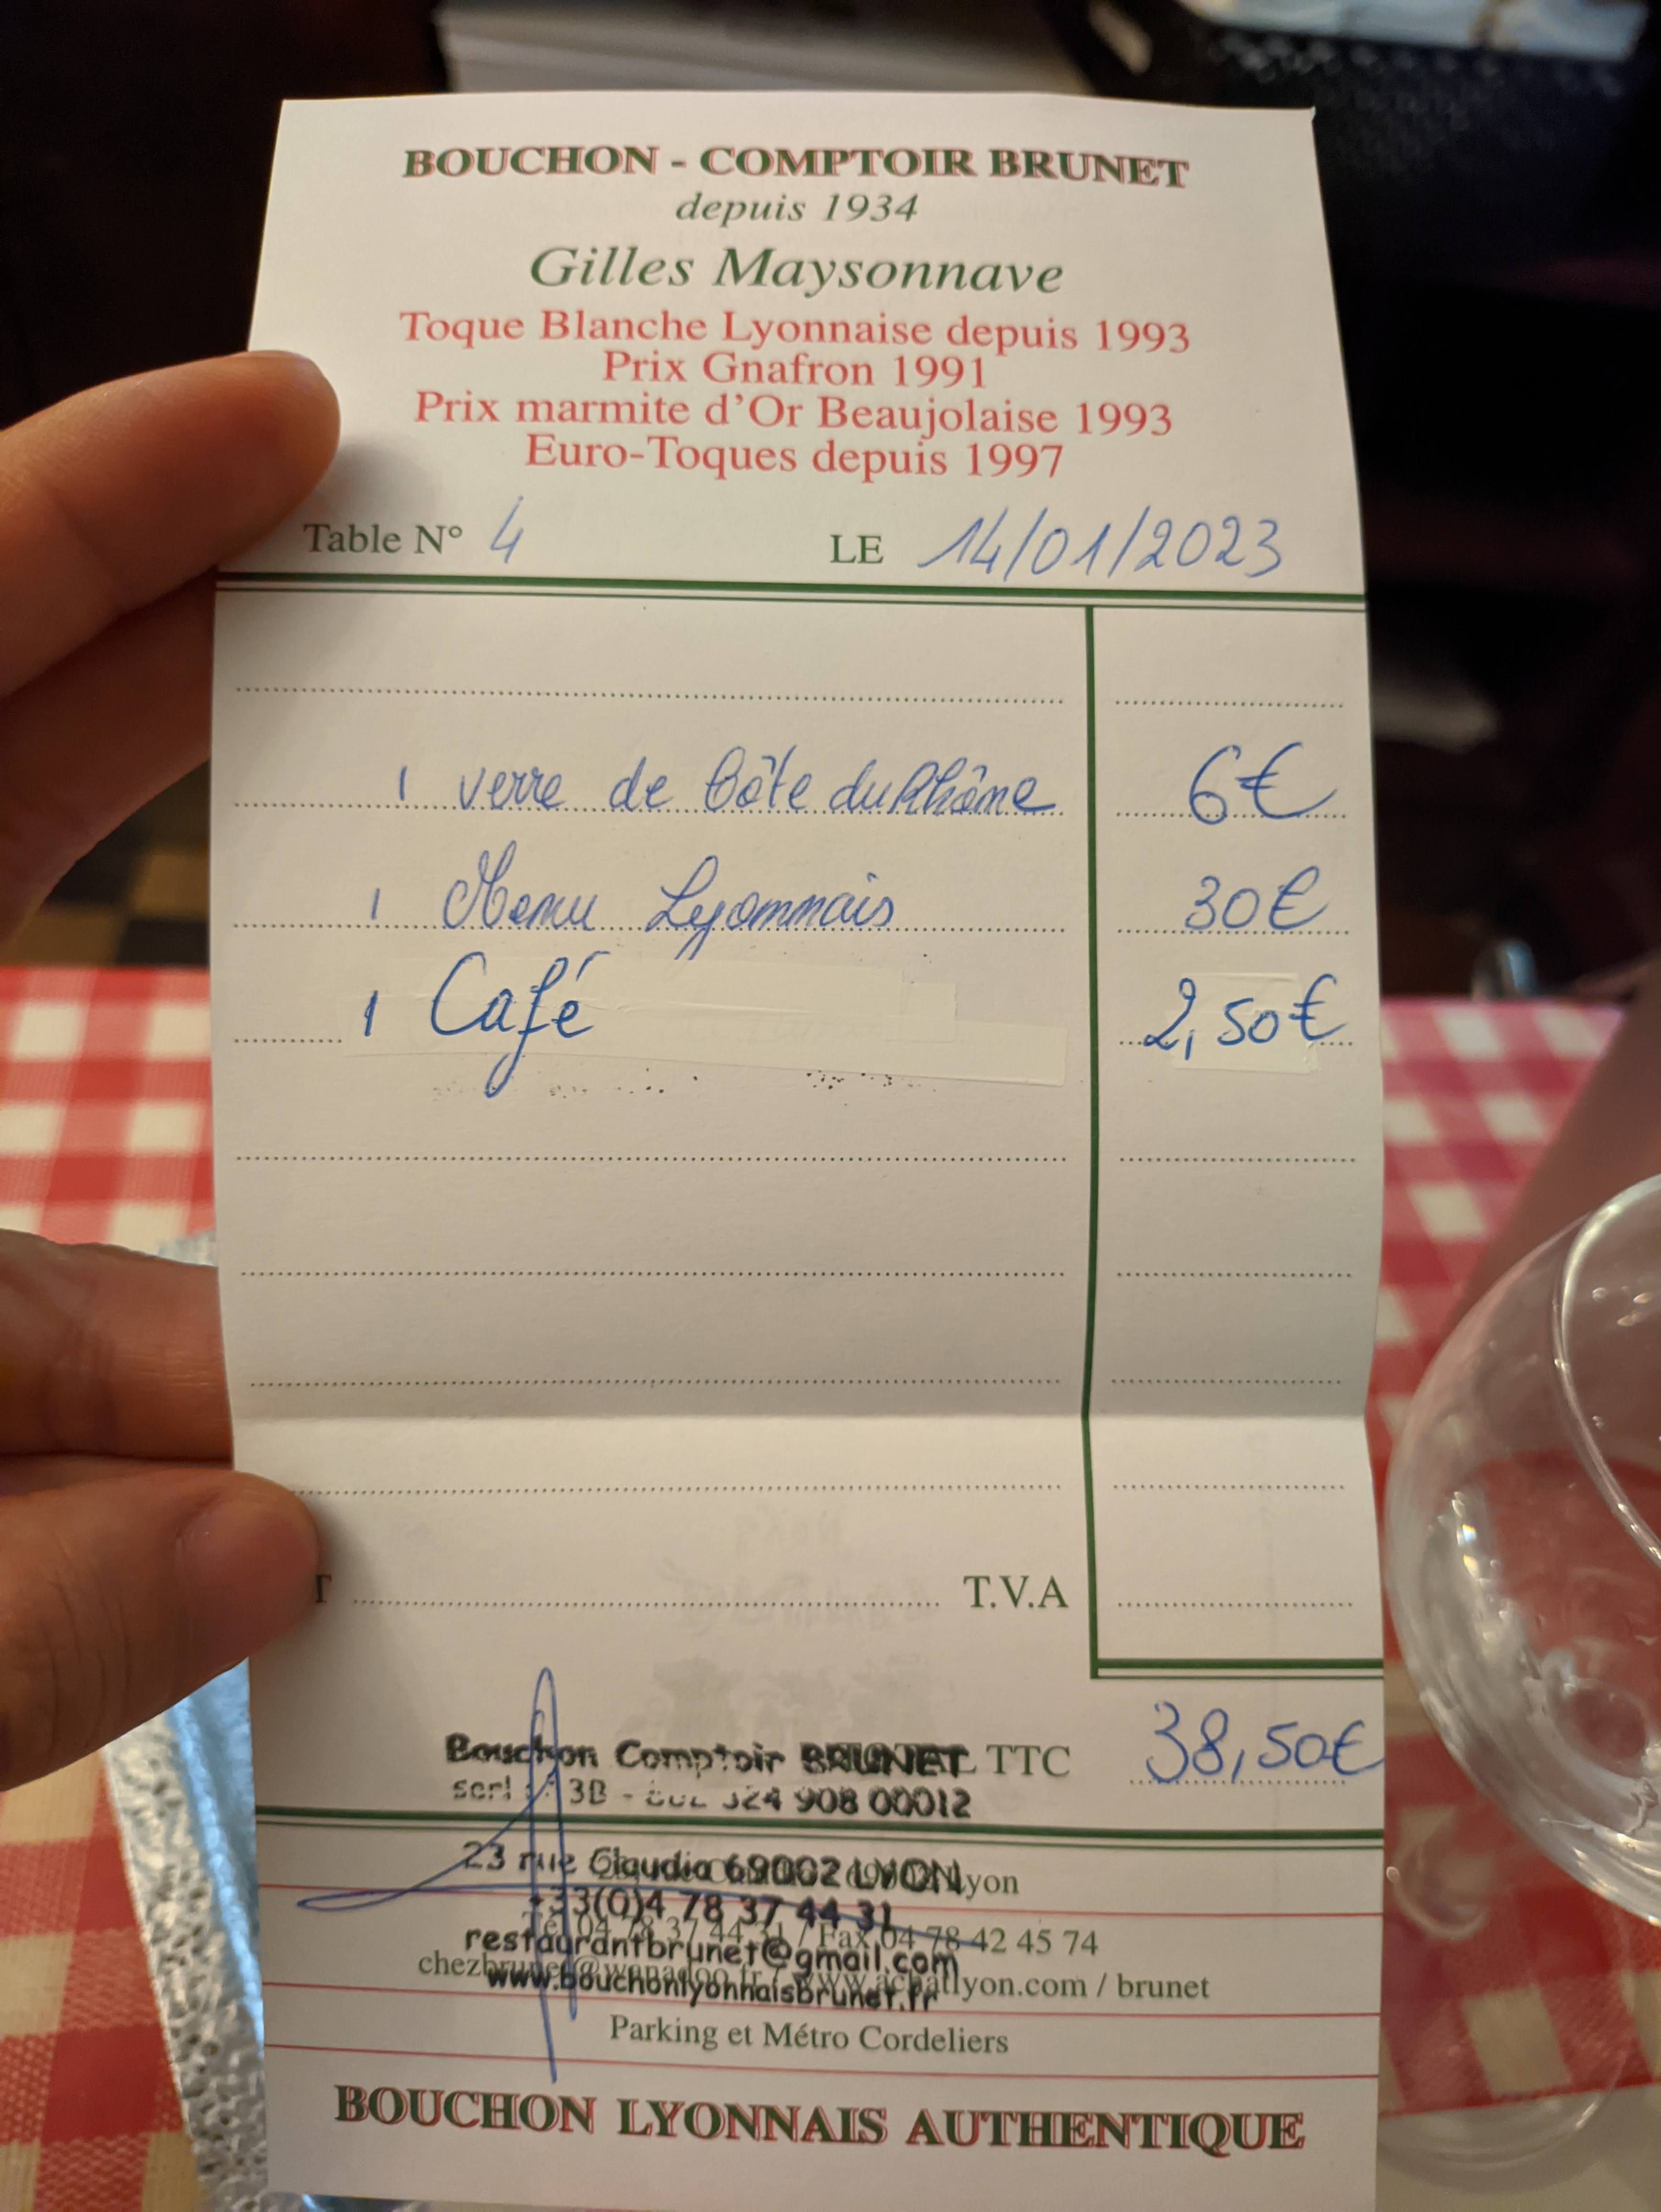 BOUCHON - COMPTOIR BRUNET
depuis 1934
Gilles Maysonnave
Toque Blanche Lyonnaise depuis 1993
Prix Gnafron 1991
Prix marmite d'Or Beaujolaise 1993
Euro-Toques depuis 1997
Table N° 4 LE 14/01/2023
1 verre de Côte du Rhône 6€
1 Menu Lyonnais 30€
1 Café 2,50€
T.V.A
Bouchon Comptoir BRUNET TTC 38,50€
324 908 00012
23 rue Claudia 69002 LYON
+33(0)4 78 37 44 31
Tél 04 78 37 44 31 / Fax 04 78 42 45 74
restaurantbrunet@gmail.com
chezbrunet@wanadoo.fr / www.achatlyon.com / brunet
www.bouchonlyonnaisbrunet.fr
Parking et Métro Cordeliers
BOUCHON LYONNAIS AUTHENTIQUE